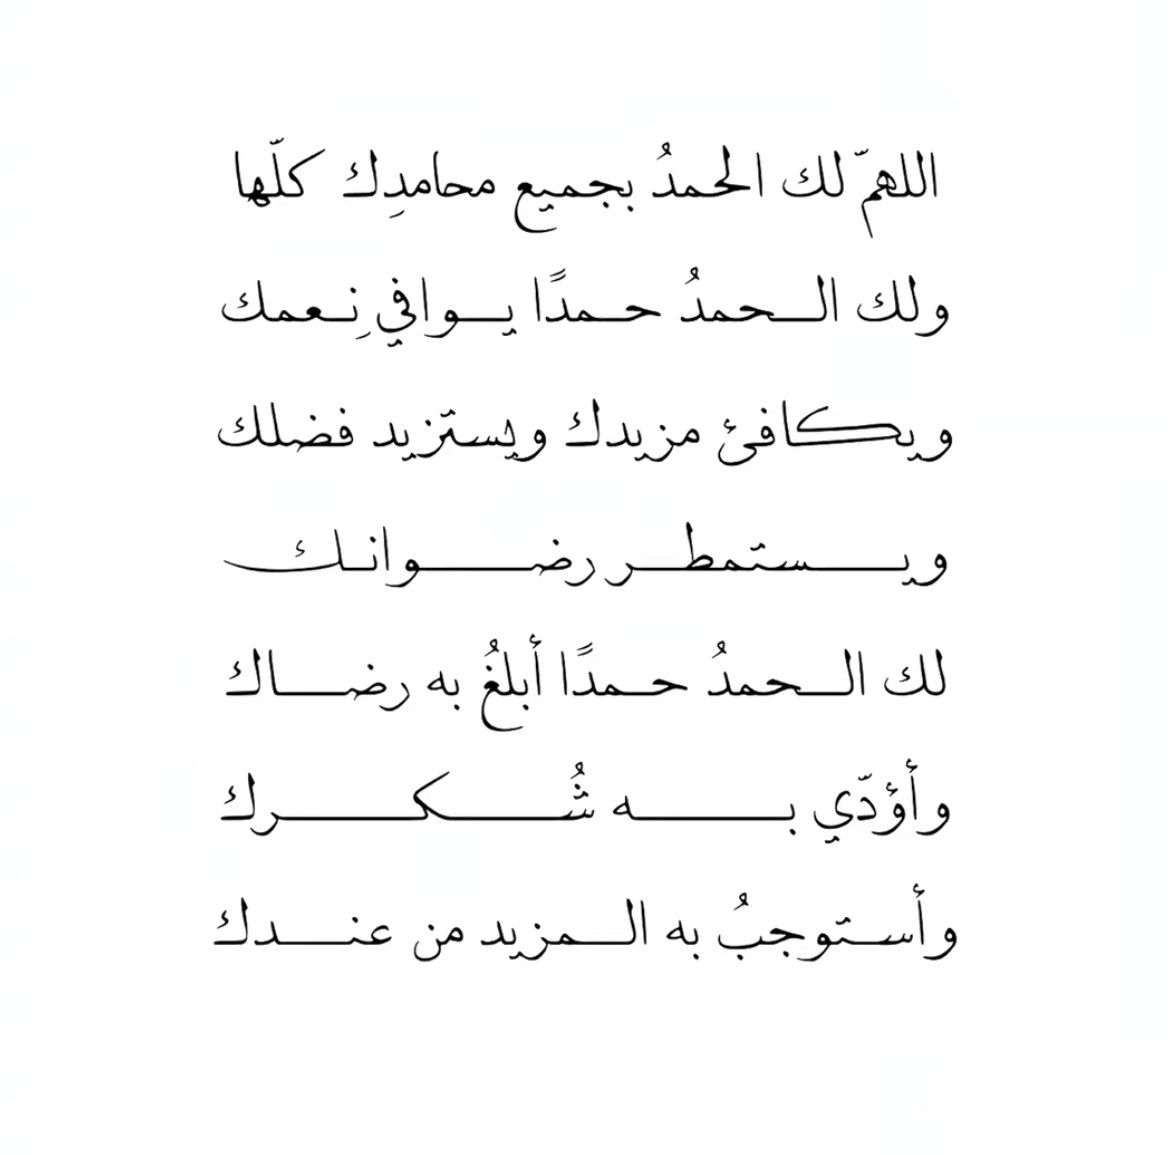 اللهمّ لك الحمدُ بجميع محامدِك كلّها
ولك الحمدُ حمدًا يوافي نِعمك
ويكافئ مزيدك ويستزيد فضلك
ويستمطر رضوانك
لك الحمدُ حمدًا أبلغُ به رضاك
وأؤدّي به شُكرك
وأستوجبُ به المزيد من عندك